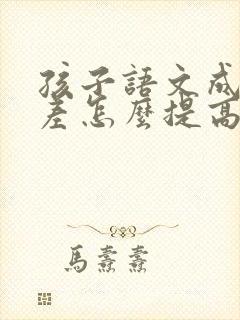 孩子語文成
差怎麼提高
馬燾燾